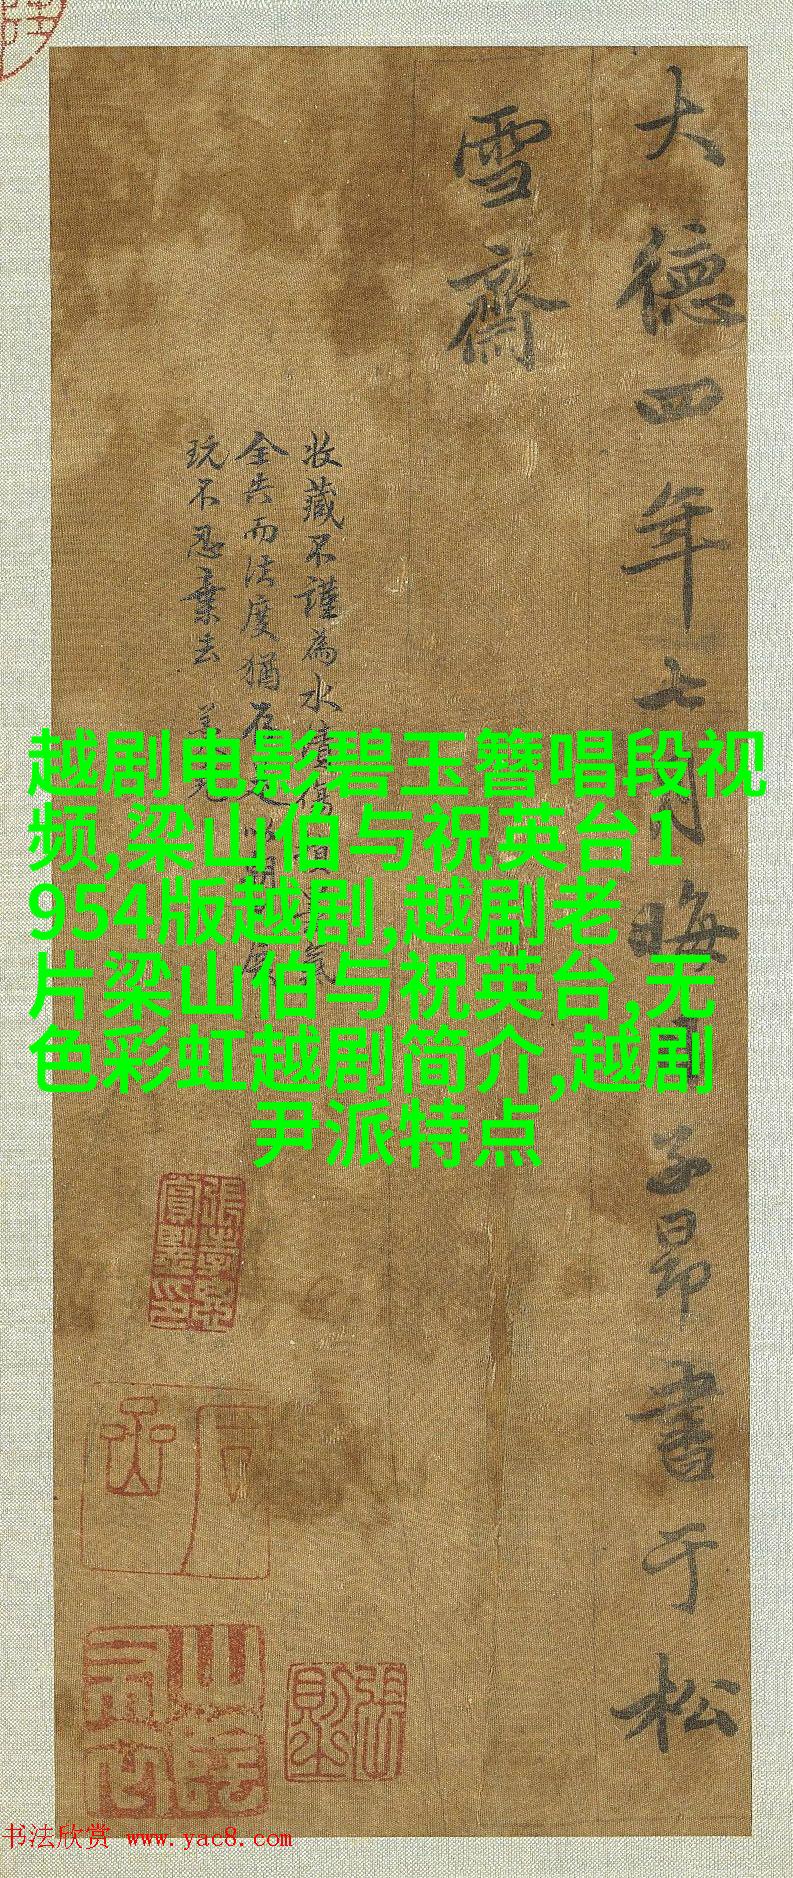 大德四年七月晦日子昂書于松
雪齋
收藏不謹為水漬傷
全失而法度猶存
玩不忍棄去
越剧电影碧玉簪唱段视
频,梁山伯与祝英台1
954版越剧,越剧老
片梁山伯与祝英台,无
色彩虹越剧简介,越剧
尹派特点
張則之
书法欣赏 www.yac8.com